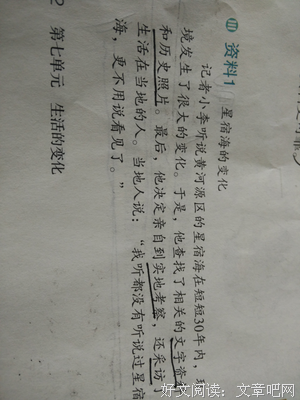 资料1 星宿海的变化
记者小李听说黄河源区的星宿海在短短30年内，环
境发生了很大的变化。于是，他查找了相关的文字资料
和历史照片。最后，他决定亲自到实地考察，还采访了
生活在当地的人。当地人说：“我听都没有听说过星宿
海，更不用说看见了。”
2 第七单元 生活的变化
好文阅读：文章吧网